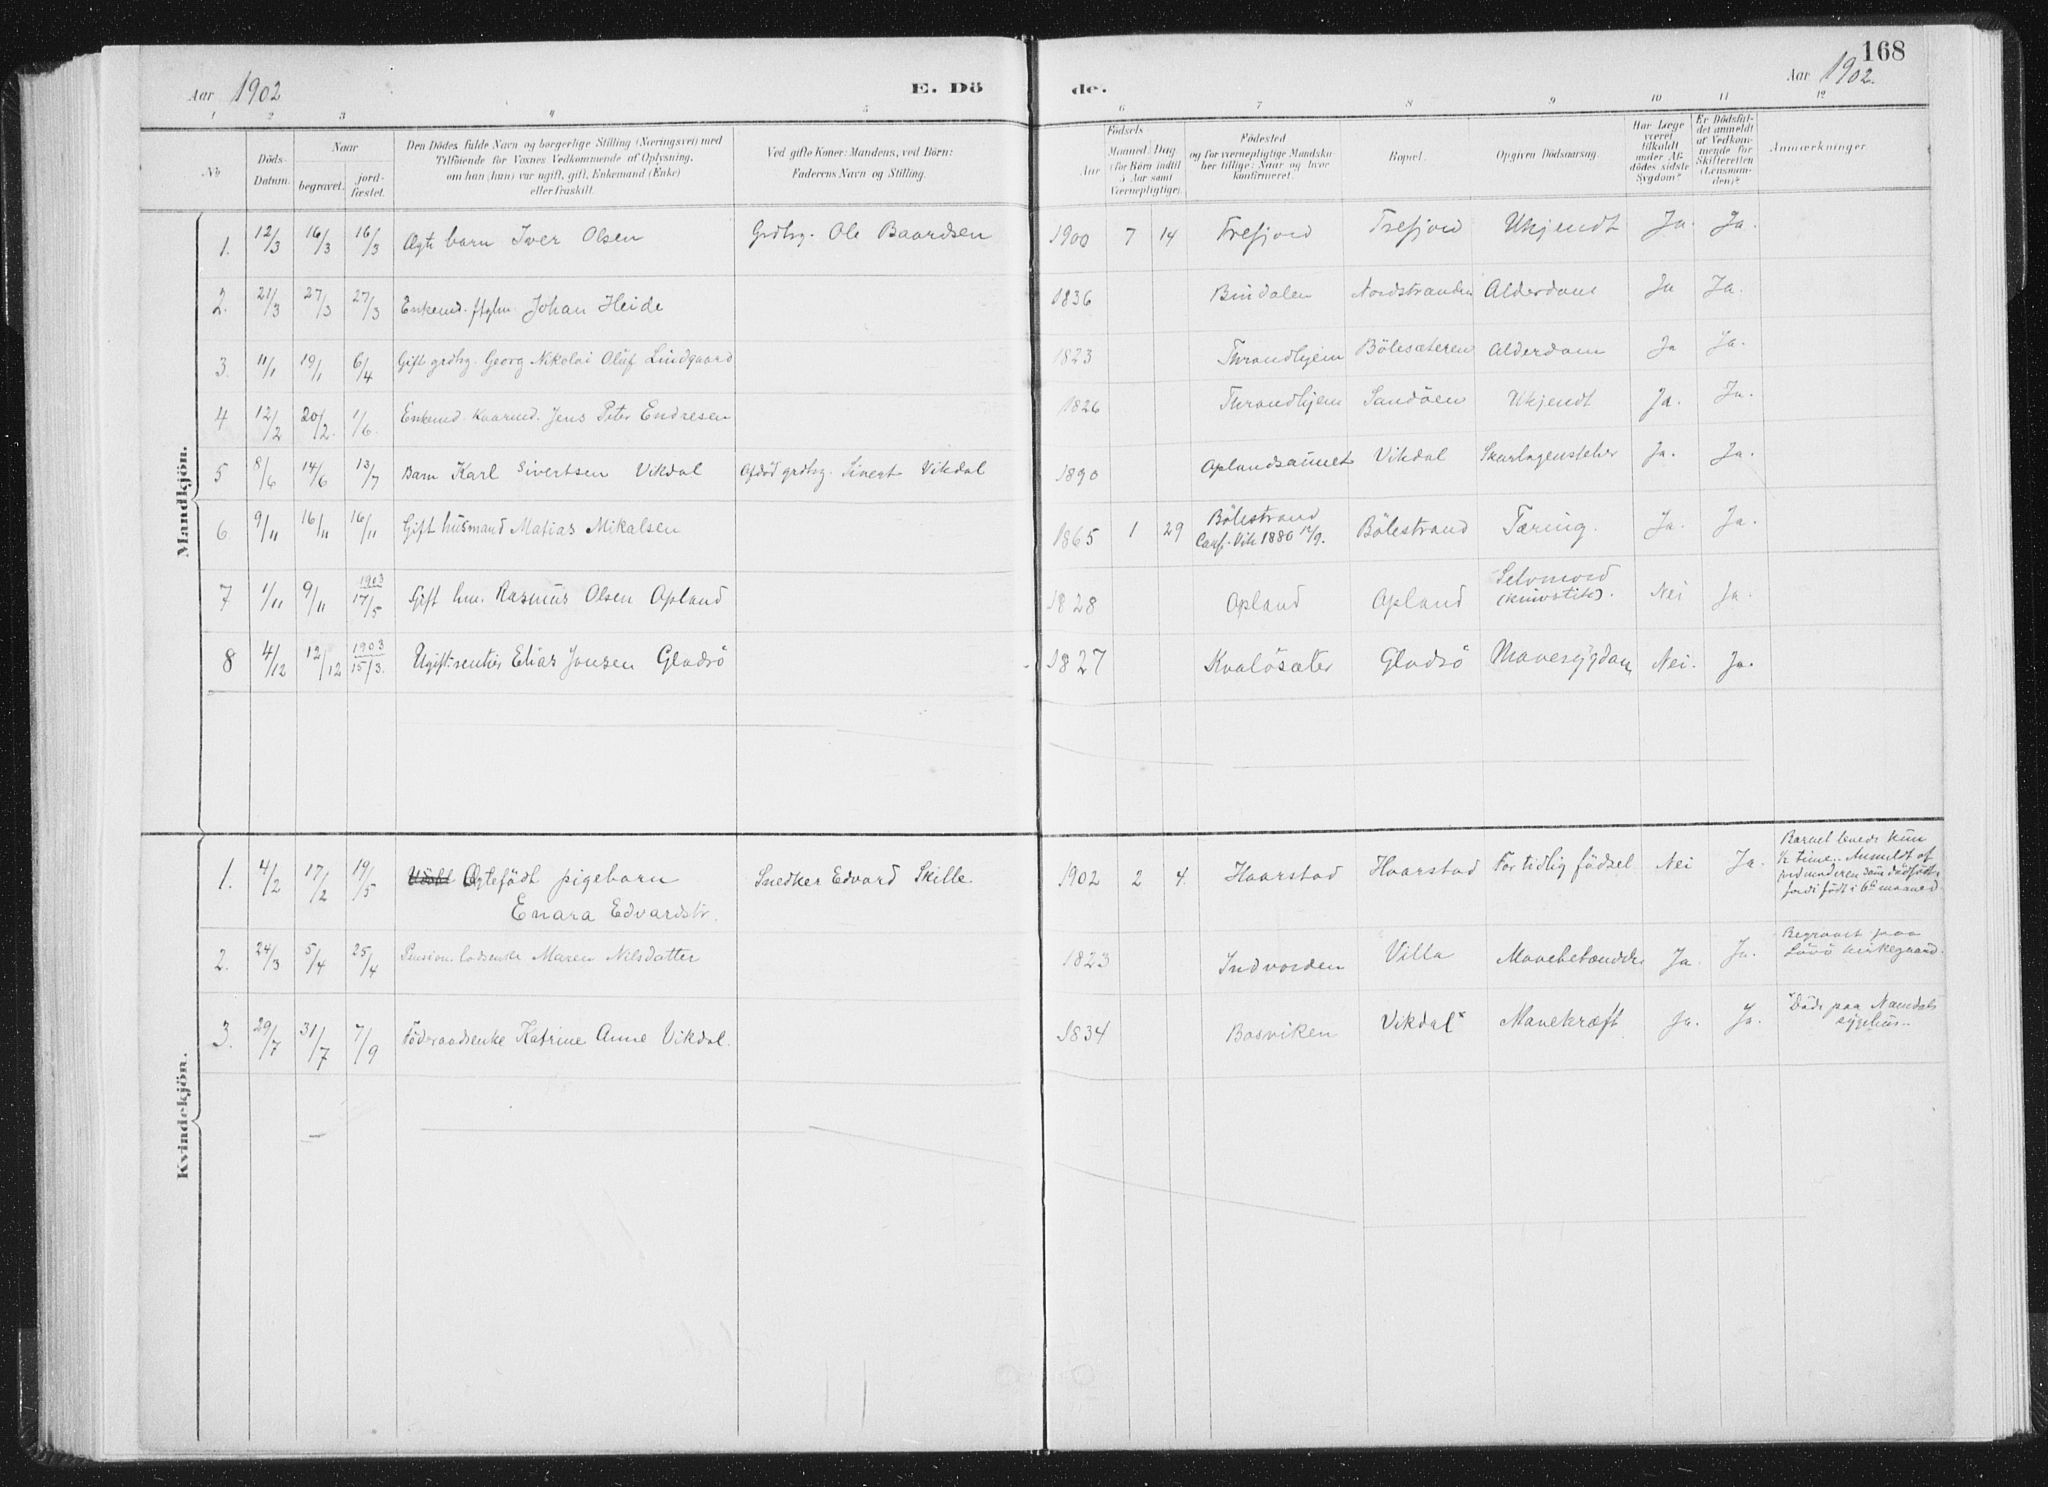 168
Aar 1902
E. Dö
de.
Aar 1902.
1 2 3 4 5 6 7 8 9 10 11 12
No
Döds-Datum.
Naar
begravet.
jord-fæstet.
Den Dödes fulde Navn og borgerlige Stilling (Næringsvei) med
Tilföiende for Voxnes Vedkommende af Oplysning,
om han (hun) var ugift, gift, Enkemand (Enke)
eller fraskilt.
Ved gifte Koner: Mandens, ved Börn:
Faderens Navn og Stilling.
Födsels
Aar
Maaned Dag
(for Börn indtil
5 Aar samt
Værnepligtige).
Födested
og for værnepligtige Mandska-
ber tillige: Naar og hvor
konfirmeret.
Bopæl.
Opgiven Dödsaarsag.
Har Læge
været
tilkaldt
under Af-
dödes sidste
Sygdom?
Er Dödsfal-
det anmeldt
af Vedkom-
mende for
Skifteretten
(Lensman-
den)?
Anmærkninger
Mandkjön.
1. 12/3 16/3 16/3 Ægte barn Iver Olsen Grdbr. Ole Baardsen 1900 7 14 Trefjord Trefjord Ukjendt Ja. Ja.
2. 21/3 27/3 27/3 Enkemd. Johan Heide 1836 Bindalen Nordstranden Alderdom Ja Ja.
3. 11/1 19/1 6/4 Gift grdbr. Georg Nikolai Oluf Lindgaard 1823 Throndhjem Bölesæteren Alderdom Ja Ja.
4 12/2 20/2. 1/6. Enkemd. Jens Peter Endresen 1826 Throndhjem Sandöen Ukjendt Ja. Ja.
5 8/6 14/6 13/7 Barn Karl Sivertsen Vikdal Afdöd grdbr. Sivert Vikdal 1890 Oplandsaunet Vikdal Skarlagensfeber Ja. Ja.
6 9/11 16/11 16/11 Gift husmand Matias Mikalsen 1865 1 29 Bölestrand
Conf. Vik 1880 12/9. Bölestrand Tæring. Ja. Ja.
7 1/11 9/11 1903
17/5 Gift hm. Rasmus Olsen Opland 1828 Opland Opland Selvmord
(knivstik). Nei Ja.
8 4/12 12/12 1903
15/3. Ugift rentier Elias Jonsen Gladsö 1827 Kvalösæter Gladsö Mavesygdom Nei. Ja.
Kvindekjön.
1. 4/2 17/2 19/5 Ægtefödt pigebarn
Enara Edvardstr. Snedker Edvard Skille 1902 2 4. Haarstad Haarstad For tidlig födsel Nei Ja.
Barnet levede kun
1/2 time. Anmeldt af
jordmoderen som dödfödt
fordi födt i 6te maaned.
2. 24/3 5/4 25/4 Pension. lodsenke Maren Nilsdatter 1823 Indvorden Villa Mavebetændelse Ja. Ja.
Begravet paa
Lövö kirkegaard.
3. 29/7 31/7 7/9 Föderaadsenke Katrine Anne Vikdal. 1834 Bosviken Vikdal* Mavekræft Ja. Ja.
*Döde paa Namdals
sygehus.